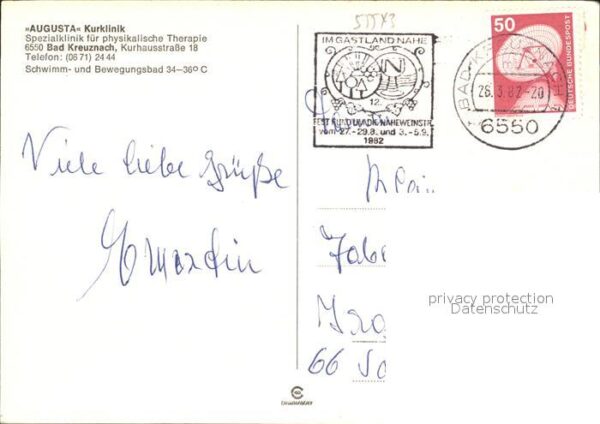 »AUGUSTA« Kurklinik
Spezialklinik für physikalische Therapie
6550 Bad Kreuznach, Kurhausstraße 18
Telefon: (0671) 2444
Schwimm- und Bewegungsbad 34–36° C
Viele liebe Grüße
IM GASTLAND NAHE
12.
FEST RUND UM DIE NAHEWEINSTR.
vom 27.-29.8. und 3.-5.9.
1982
BAD KREUZNACH
26.3.82-20
6550
50
DEUTSCHE BUNDESPOST
66
privacy protection
Datenschutz